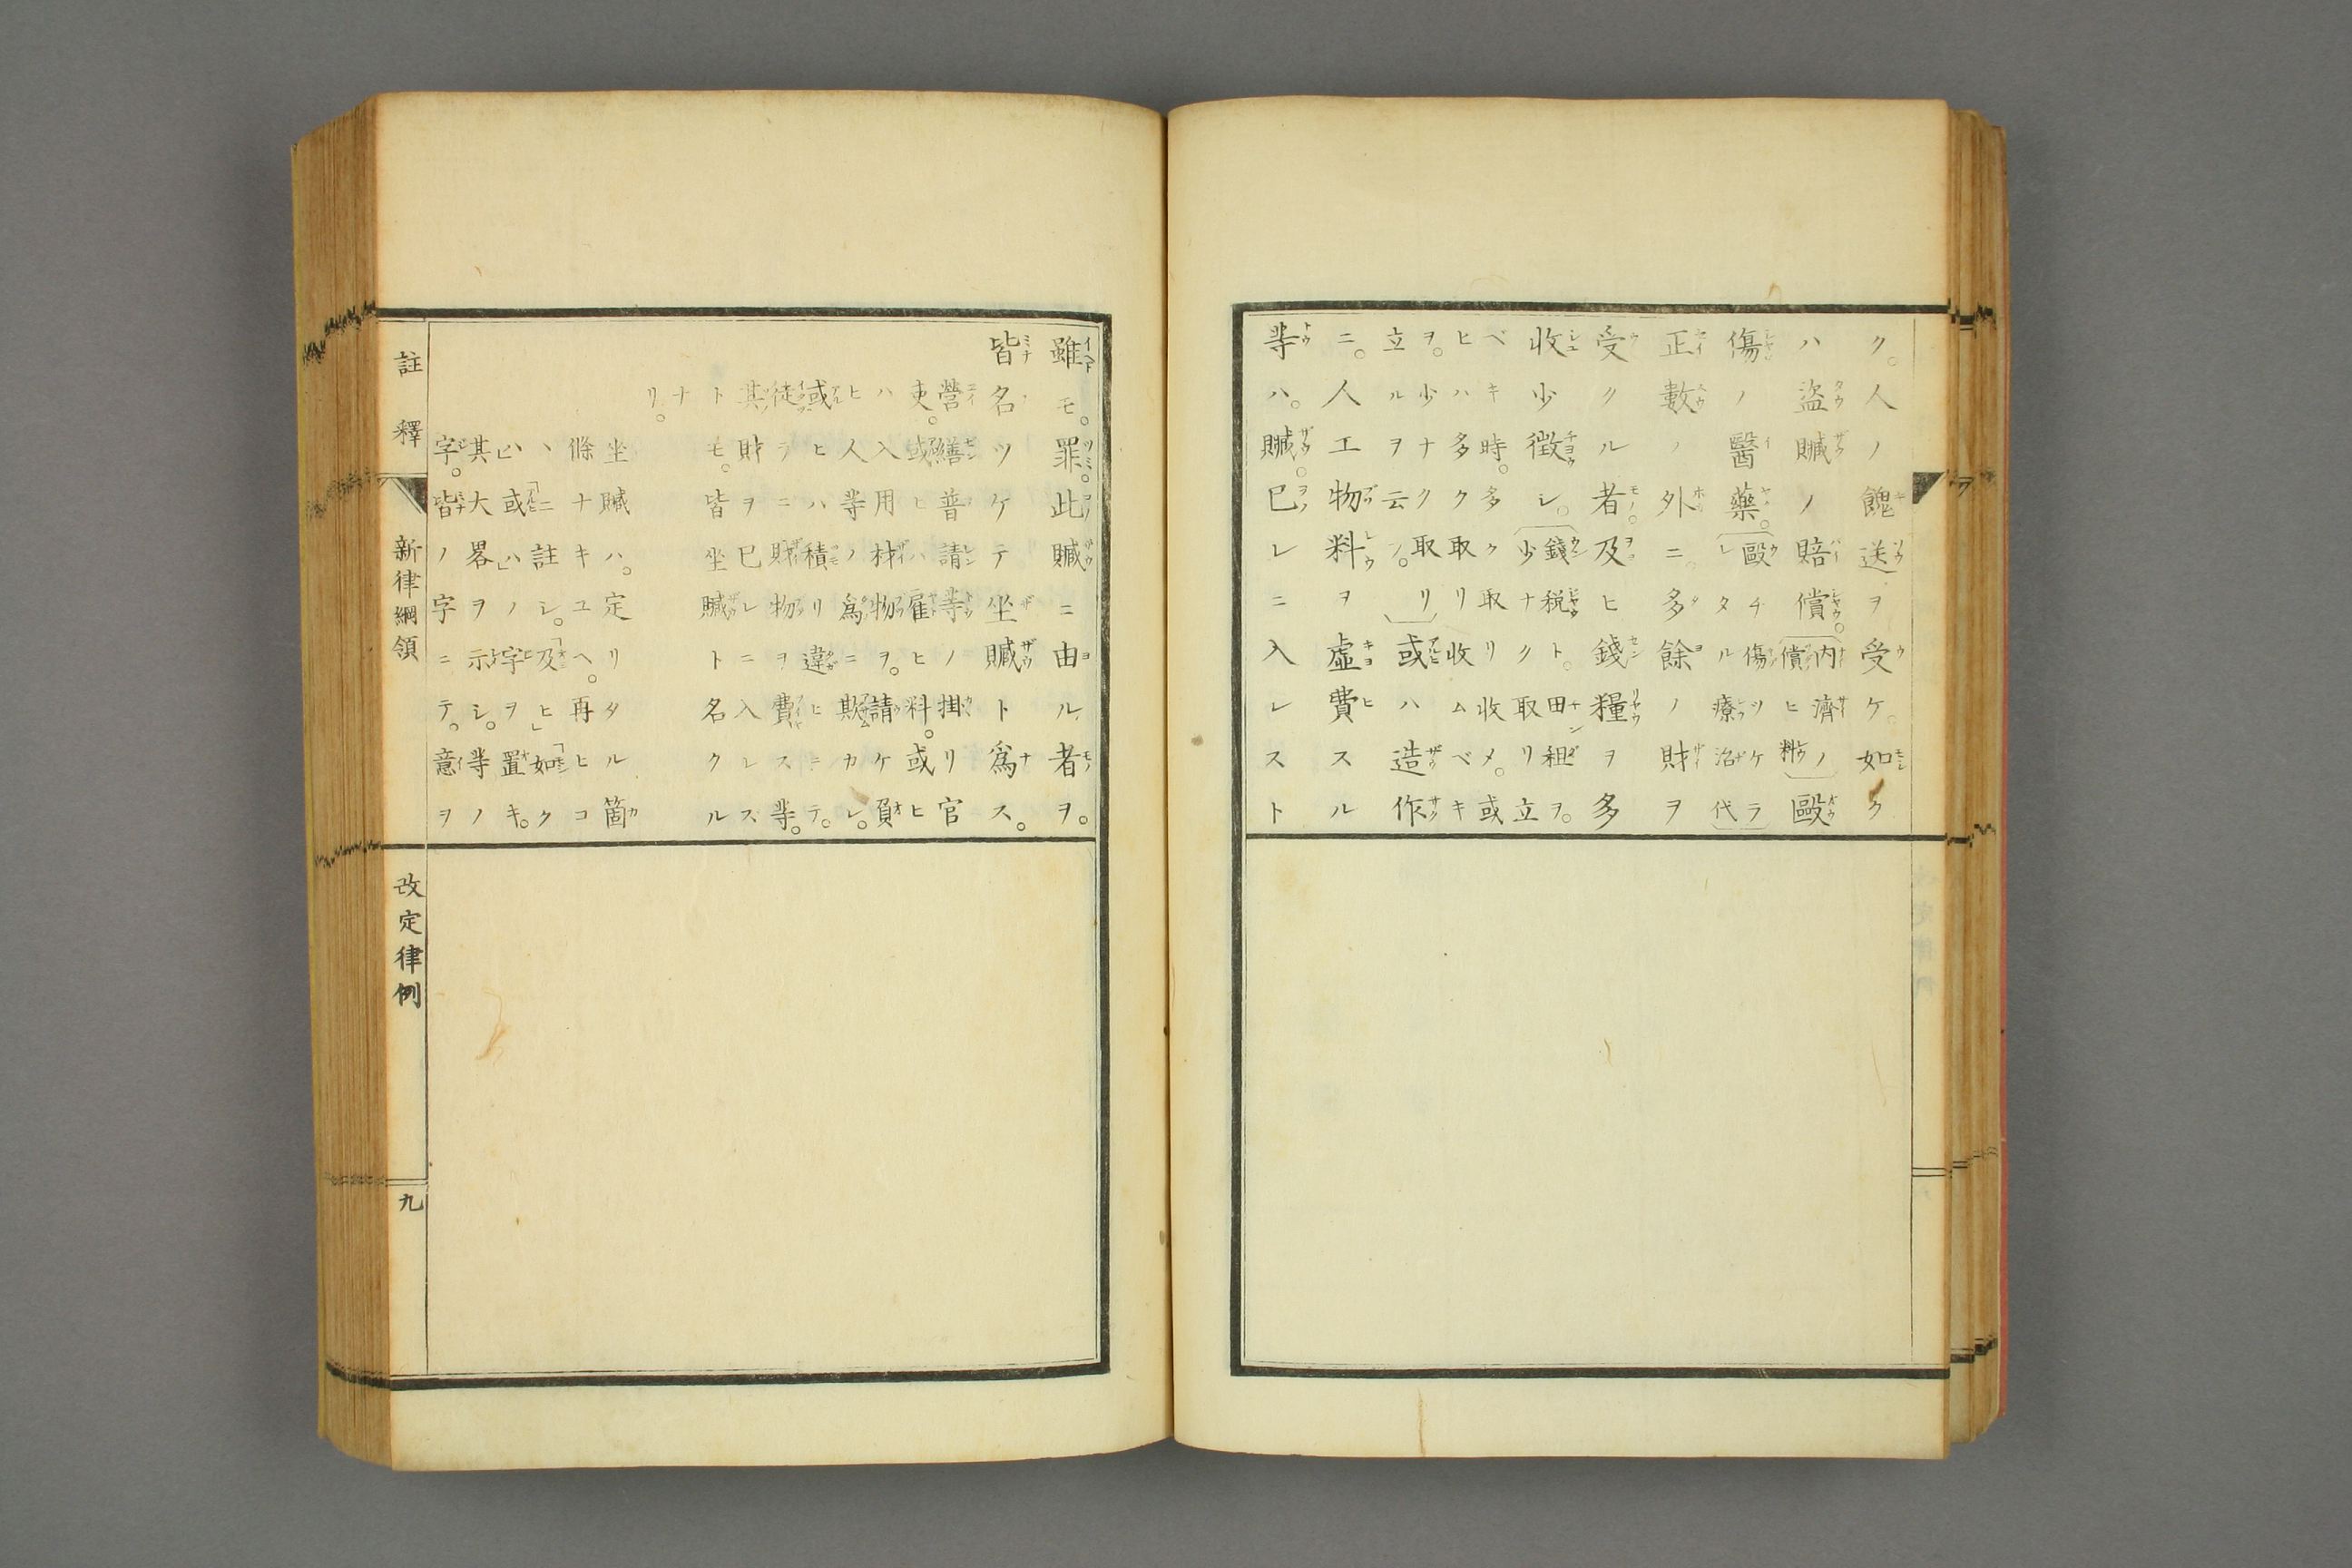 ク。人ノ餽送ヲ受ケ。如ク
ハ盗贓ノ賠償。(内濟ノ償ヒ辨)毆
傷ノ醫藥。(毆チ傷ツケラレタル療治代)
正數ノ外ニ。多餘ノ財ヲ
受クル者。及ヒ錢糧ヲ多
收少徴シ。(錢税ト。田租ヲ。少ナク取リ立
ベキ時。多ク取リ收メ。或
ヒハ多ク取リ收ムベキ
ヲ。少ナク取リ立ルヲ云フ。)或ハ造作
ニ。人工物料ヲ虚費スル
等ハ。贓。已レニ入レスト
雖モ。罪。此贓ニ由ル者ヲ。
皆名ツケテ坐贓ト爲ス。
營繕普請等ノ掛リ官
吏。或ヒハ雇ヒ料。或ヒ
ハ入用材物ヲ。請ケ負
ヒ人等ノ爲ニ欺カレ。
或ヒハ積リ違ヒニテ。
徒ラニ財物ヲ費ス等。
其財ヲ已レニ入レズ
トモ。皆坐贓ト名クル
ナリ。
坐贓ハ。定リタル箇
條ナキユヘ。再ヒコ
ヽニ註シ。「及ヒ」「如ク
ハ」「或ハ」ノ字ヲ置キ。
其大畧ヲ示シ。等ノ
字。皆ノ字ニテ。意ヲ
註釋 新律綱領 改定律例 九